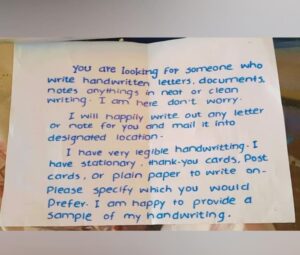 you are looking for someone who
write handwritten letters, documents,
notes anythings in neat or clean
writing. I am here don't worry.
I will happily write out any letter
or note for you and mail it into
designated location.
I have very legible handwritting. I
have stationary, thank-you cards, Post
cards, or plain paper to write on.
Please specify which you would
Prefer. I am happy to provide a
sample of my handwriting.